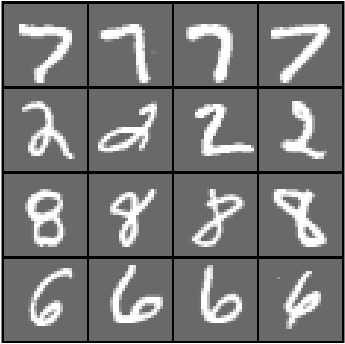 7 7 7 7
2 2 2 2
8 8 8 8
6 6 6 6